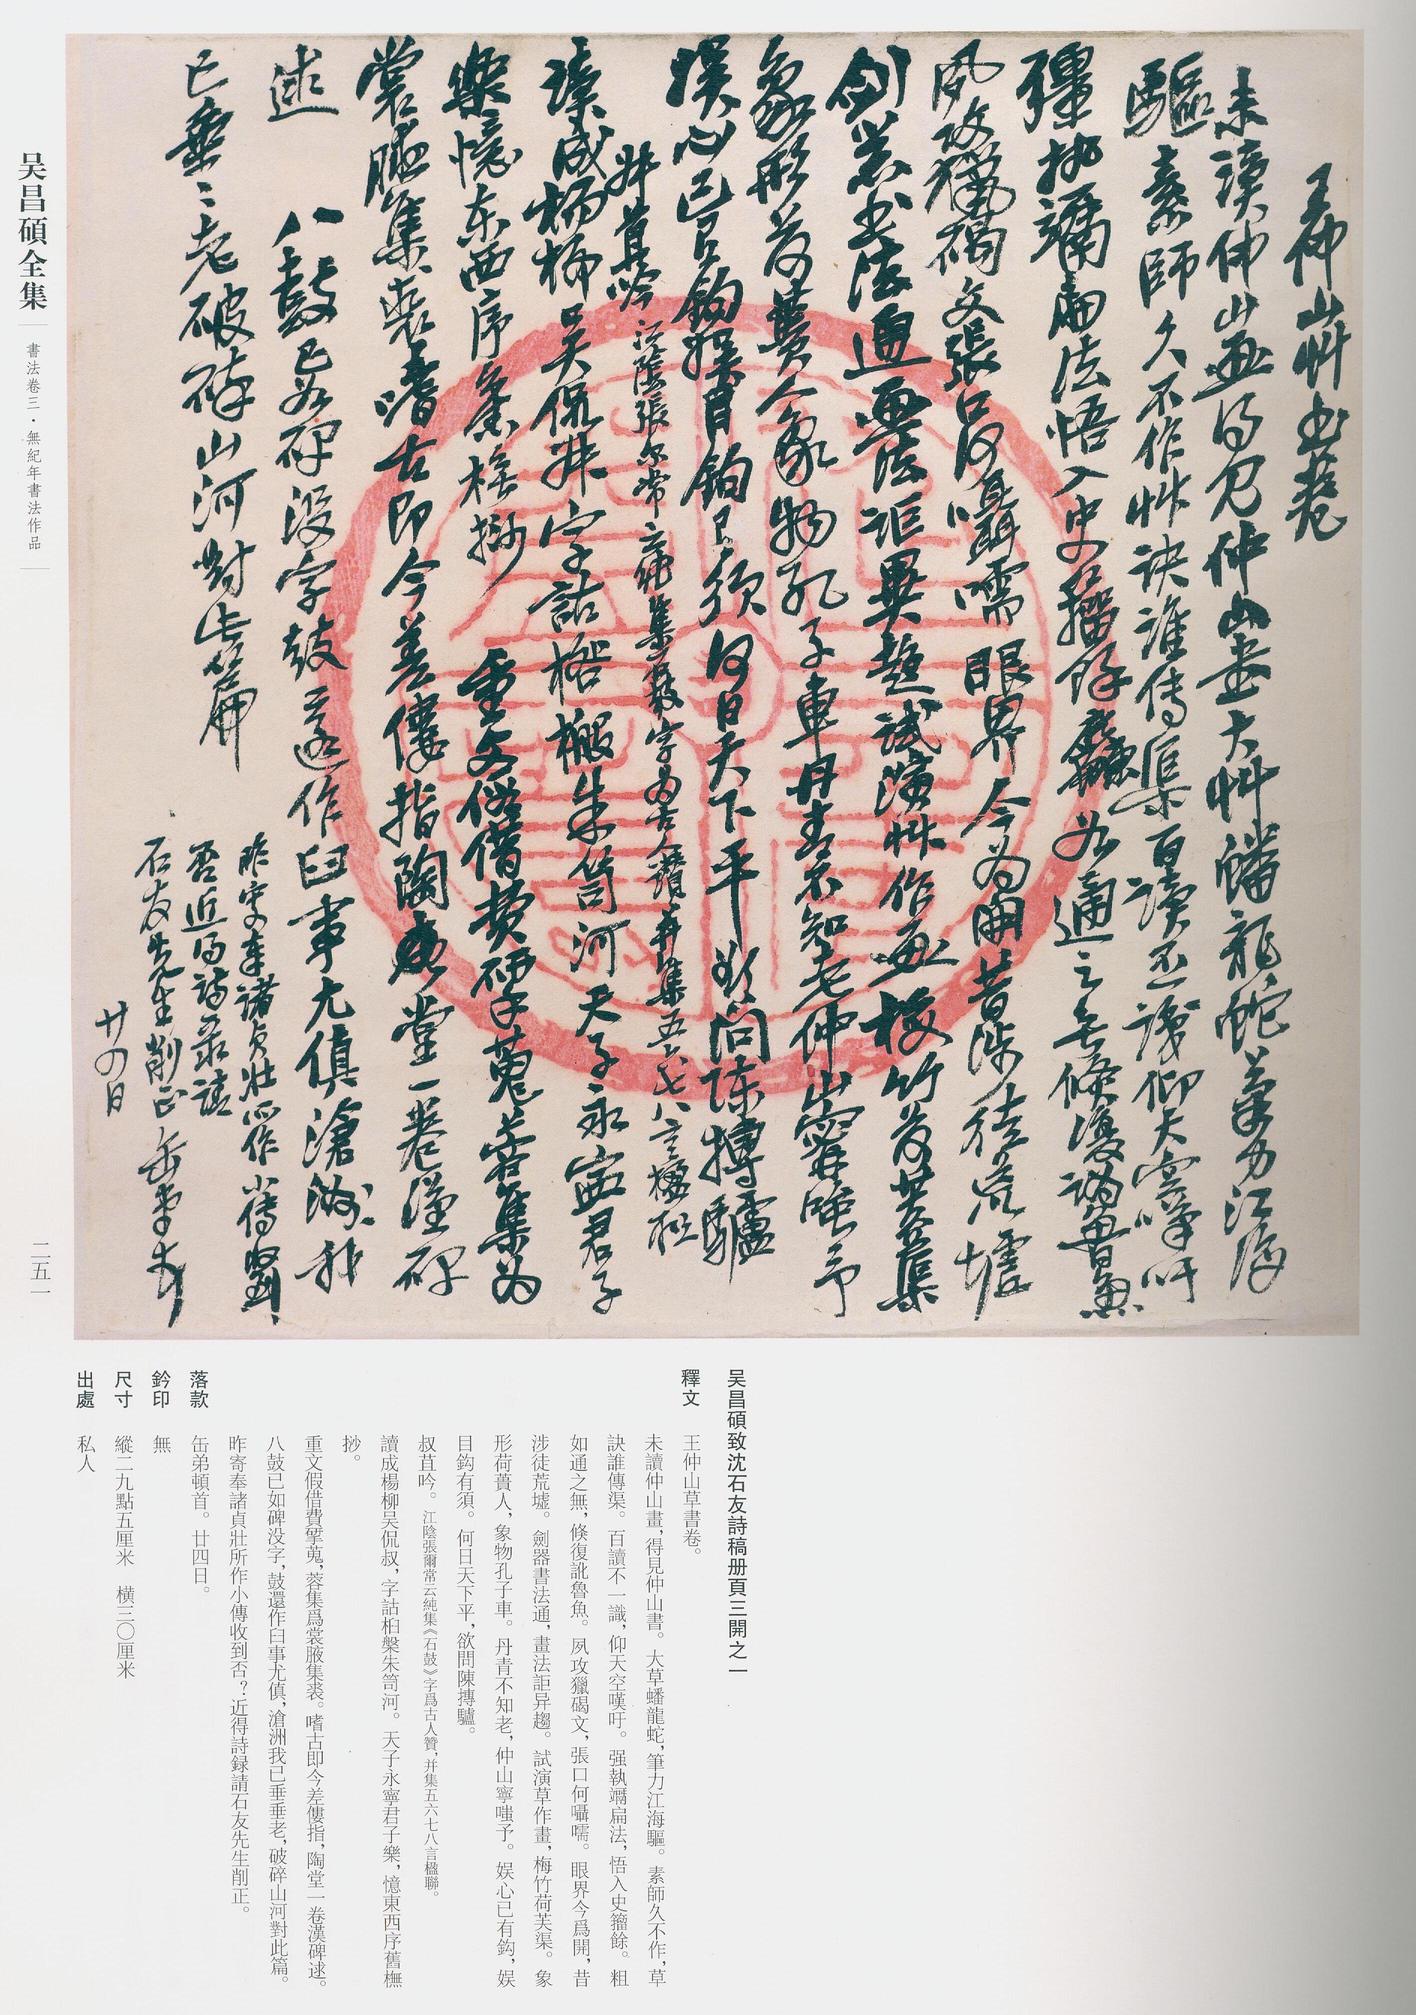 王仲山艸書卷
未讀仲山畫得見仲山書大艸蟠龍蛇筆力江海
驅素師久不作艸訣誰傳渠百讀不一識仰天空嘆吁
彊執漏扁法悟入史籀餘麤如通之無倏復訛魯魚
夙攻獵碣文張口何囁嚅眼界今為開昔涉徒荒墟
劍器書法通畫法詎異趨試演艸作畫梅竹荷芙蕖
象形荷蕢人象物孔子車丹青不知老仲山寧嗤予
娛心已有鉤娛目鉤有須何日天下平欲問陳摶驢
叔苴吟 江陰張爾常云純集石鼓字為古人讚并集五六七八言楹聯
讀成楊柳吳侃叔字詁槃朱笥河天子永寍君子
樂憶東西序舊橅抄 重文假借費揅蒐蓉集為
裳腋集裘嗜古即今差僂指陶堂一卷漢碑
逑 八鼓已如碑沒字鼓還作臼事尤傎滄洲我
已垂垂老破碎山河對此篇
昨寄奉諸貞壯所作小傳收到
否近得詩錄請
石友先生削正 缶弟頓首
廿四日
吴昌碩全集
書法卷三·無紀年書法作品
二五一
吴昌碩致沈石友詩稿册頁三開之一
釋文 王仲山草書卷。
未讀仲山畫,得見仲山書。大草蟠龍蛇,筆力江海驅。素師久不作,草
訣誰傳渠。百讀不一識,仰天空嘆吁。强執漏扁法,悟入史籀餘。粗
如通之無,倏復訛魯魚。夙攻獵碣文,張口何囁嚅。眼界今爲開,昔
涉徒荒墟。劍器書法通,畫法詎异趨。試演草作畫,梅竹荷芙渠。象
形荷蕢人,象物孔子車。丹青不知老,仲山寧嗤予。娱心已有鈎,娱
目鈎有須。何日天下平,欲問陳摶驢。
叔苴吟。江陰張爾常云純集《石鼓》字爲古人贊,并集五六七八言楹聯。
讀成楊柳吴侃叔,字詁桕槃朱笥河。天子永寧君子樂,憶東西序舊橅
抄。
重文假借費揅蒐,蓉集爲裳腋集裘。嗜古即今差僂指,陶堂一卷漢碑逑。
八鼓已如碑没字,鼓還作臼事尤傎,滄洲我已垂垂老,破碎山河對此篇。
昨寄奉諸貞壯所作小傳收到否?近得詩録請石友先生削正。
落款 缶弟頓首。廿四日。
鈐印 無
尺寸 縱二九點五厘米 横三〇厘米
出處 私人